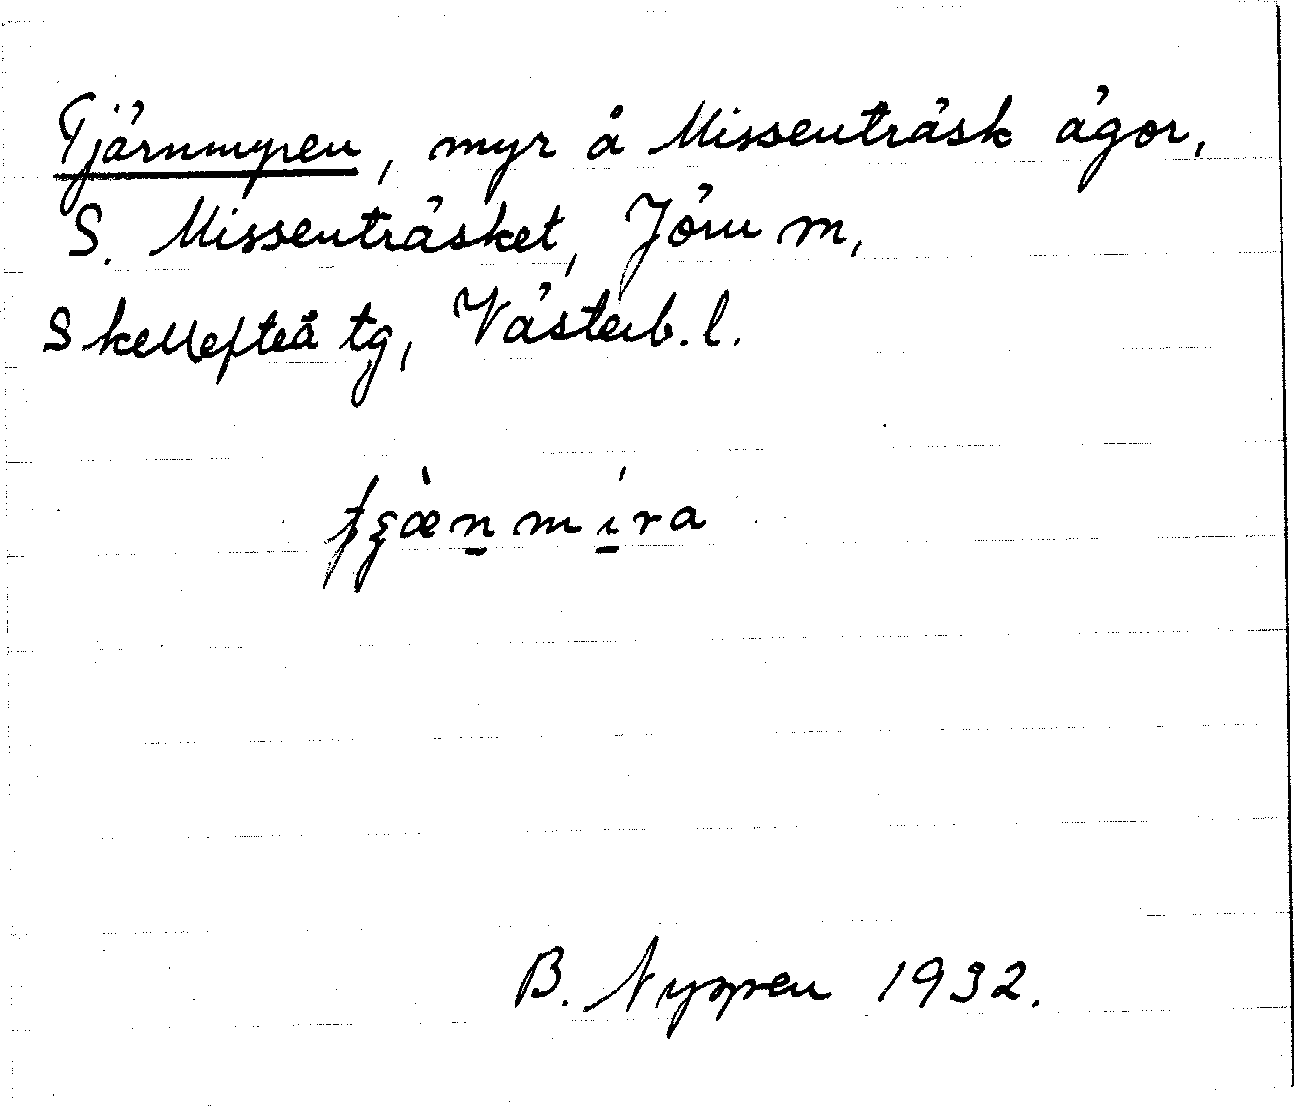 Tjärnmyren, myr å Missenträsk ägor,
S. Missenträsket, Jörn m,
Skellefteå tg, Västerb. l.
B. Nyppen 1932.